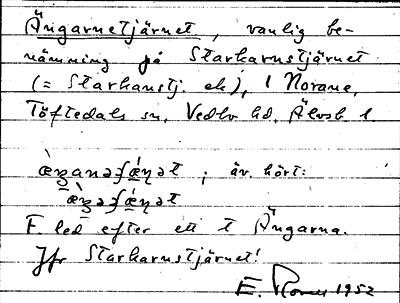 Ängarnetjärnet, vanlig be-
nämning på Starkarnstjärnet
(= Starkanstj. ek), i Norane,
Töftedals sn, Vedbo hd, Älvsb. l
æŋanəʃæ̀ɳət ; äv. hört:
æŋəʃæ̀ɳət
F. led efter ett t Ängarna.
Jfr Starkarnstjärnet!
E. 1952